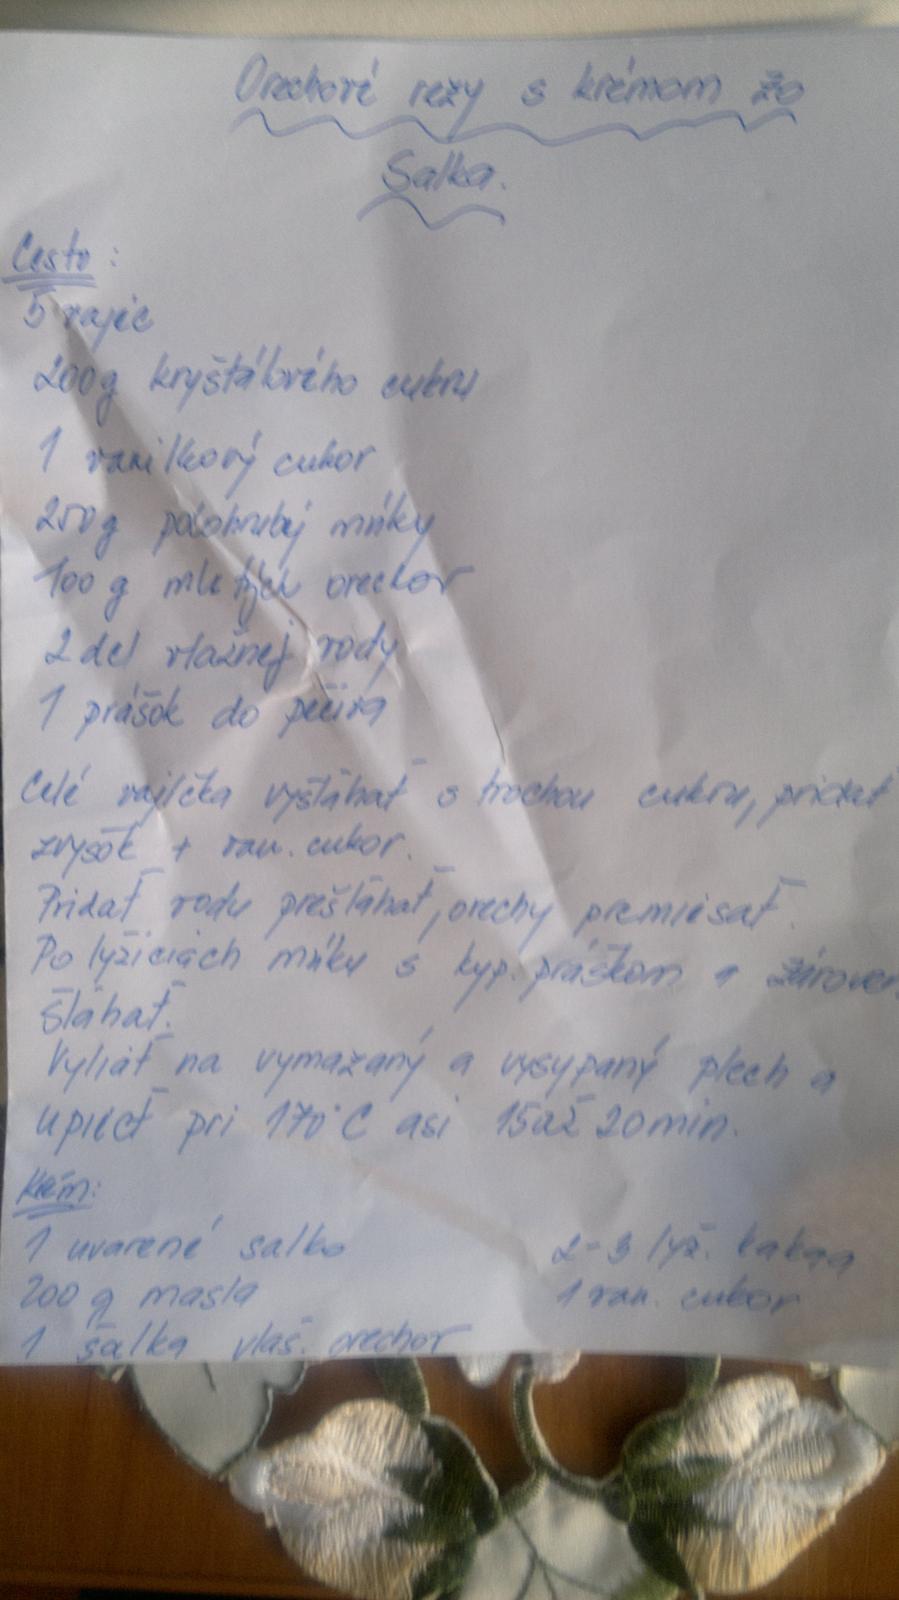 Orechové rezy s krémom zo
Salka.
Cesto:
5 vajec
200g kryštálového cukru
1 vanilkový cukor
250g polohrubej múky
100g mletých orechov
2 dcl vlažnej vody
1 prášok do pečiva
Celé vajíčka vyšľahať s trochou cukru, pridať
zvyšok + van. cukor.
Pridať vodu prešľahať, orechy premiešať.
Po lyžiciach múku s kyp. práškom a zároveň
šľahať.
Vyliať na vymazaný a vysypaný plech a
upiecť pri 170°C asi 15až 20min.
Krém:
1 uvarené salko 2-3 lyž. kakaa
200g masla 1 van. cukor
1 šálka vlaš. orechov